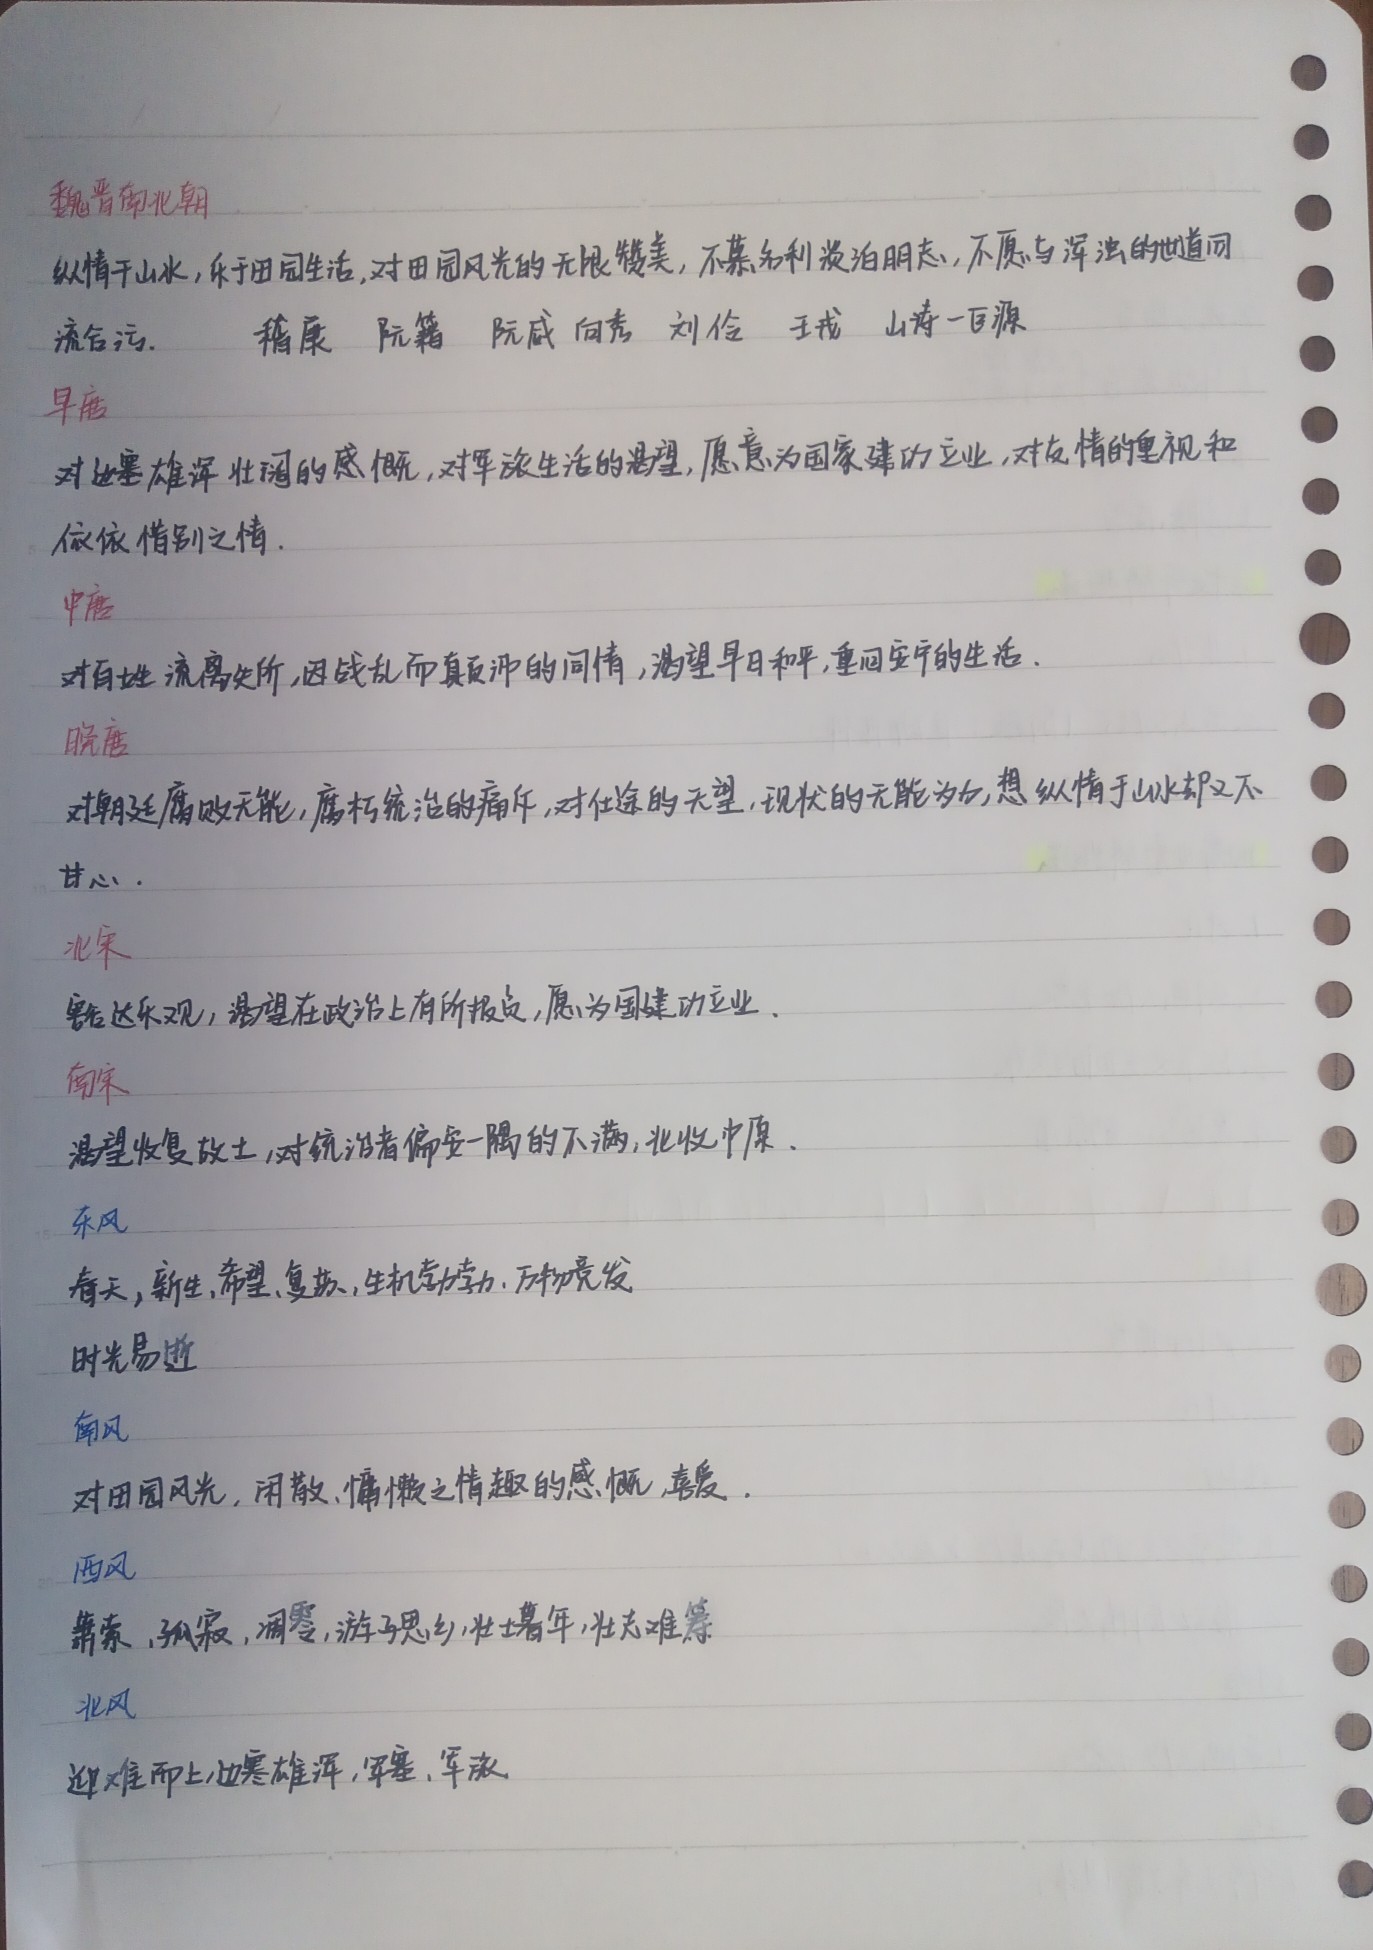 魏晋南北朝
纵情于山水,乐于田园生活,对田园风光的无限赞美,不慕名利淡泊明志,不愿与浑浊的世道同
流合污. 嵇康 阮籍 阮咸 向秀 刘伶 王戎 山涛一巨源
早唐
对边塞雄浑壮阔的感慨,对军旅生活的渴望,愿意为国家建功立业,对友情的重视和
依依惜别之情.
中唐
对百姓流离失所,因战乱而颠沛的同情,渴望早日和平,重回安宁的生活.
晚唐
对朝廷腐败无能,腐朽统治的痛斥,对仕途的失望,现状的无能为力,想纵情于山水却又不
甘心.
北宋
豁达乐观,渴望在政治上有所报负,愿为国建功立业.
南宋
渴望收复故土,对统治者偏安一隅的不满,北收中原.
东风
春天,新生、希望、复苏、生机勃勃、万物竞发
时光易逝
南风
对田园风光,闲散、慵懒之情趣的感慨,喜爱.
西风
萧索,孤寂,凋零,游子思乡,壮士暮年,壮志难筹
北风
迎难而上,边寒雄浑,军塞、军旅